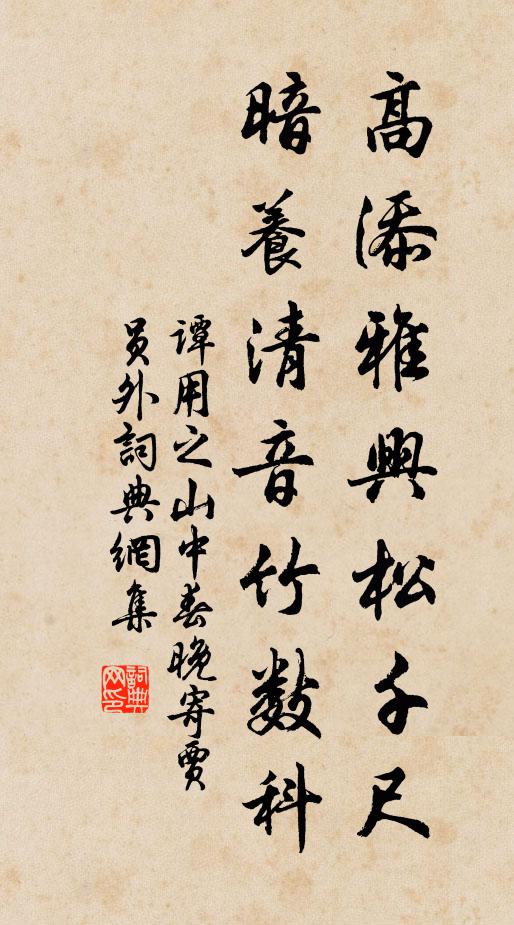 高添雅興松千尺
暗養清音竹數科
譚用之山中春晚寄賈
員外詞典網集
詞典
网印